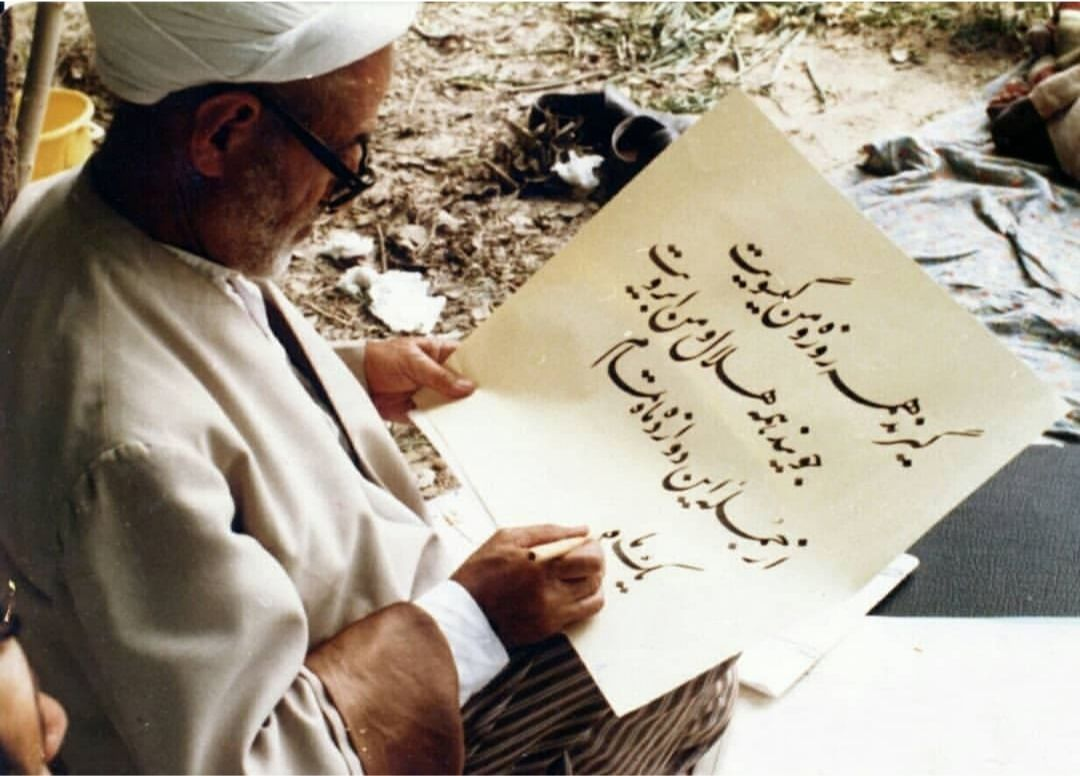 گیرند همه روزه و من گیسویت
جویند همه هلال و من ابرویت
از جملهٔ این دوازده ماه تمام
یک ماه